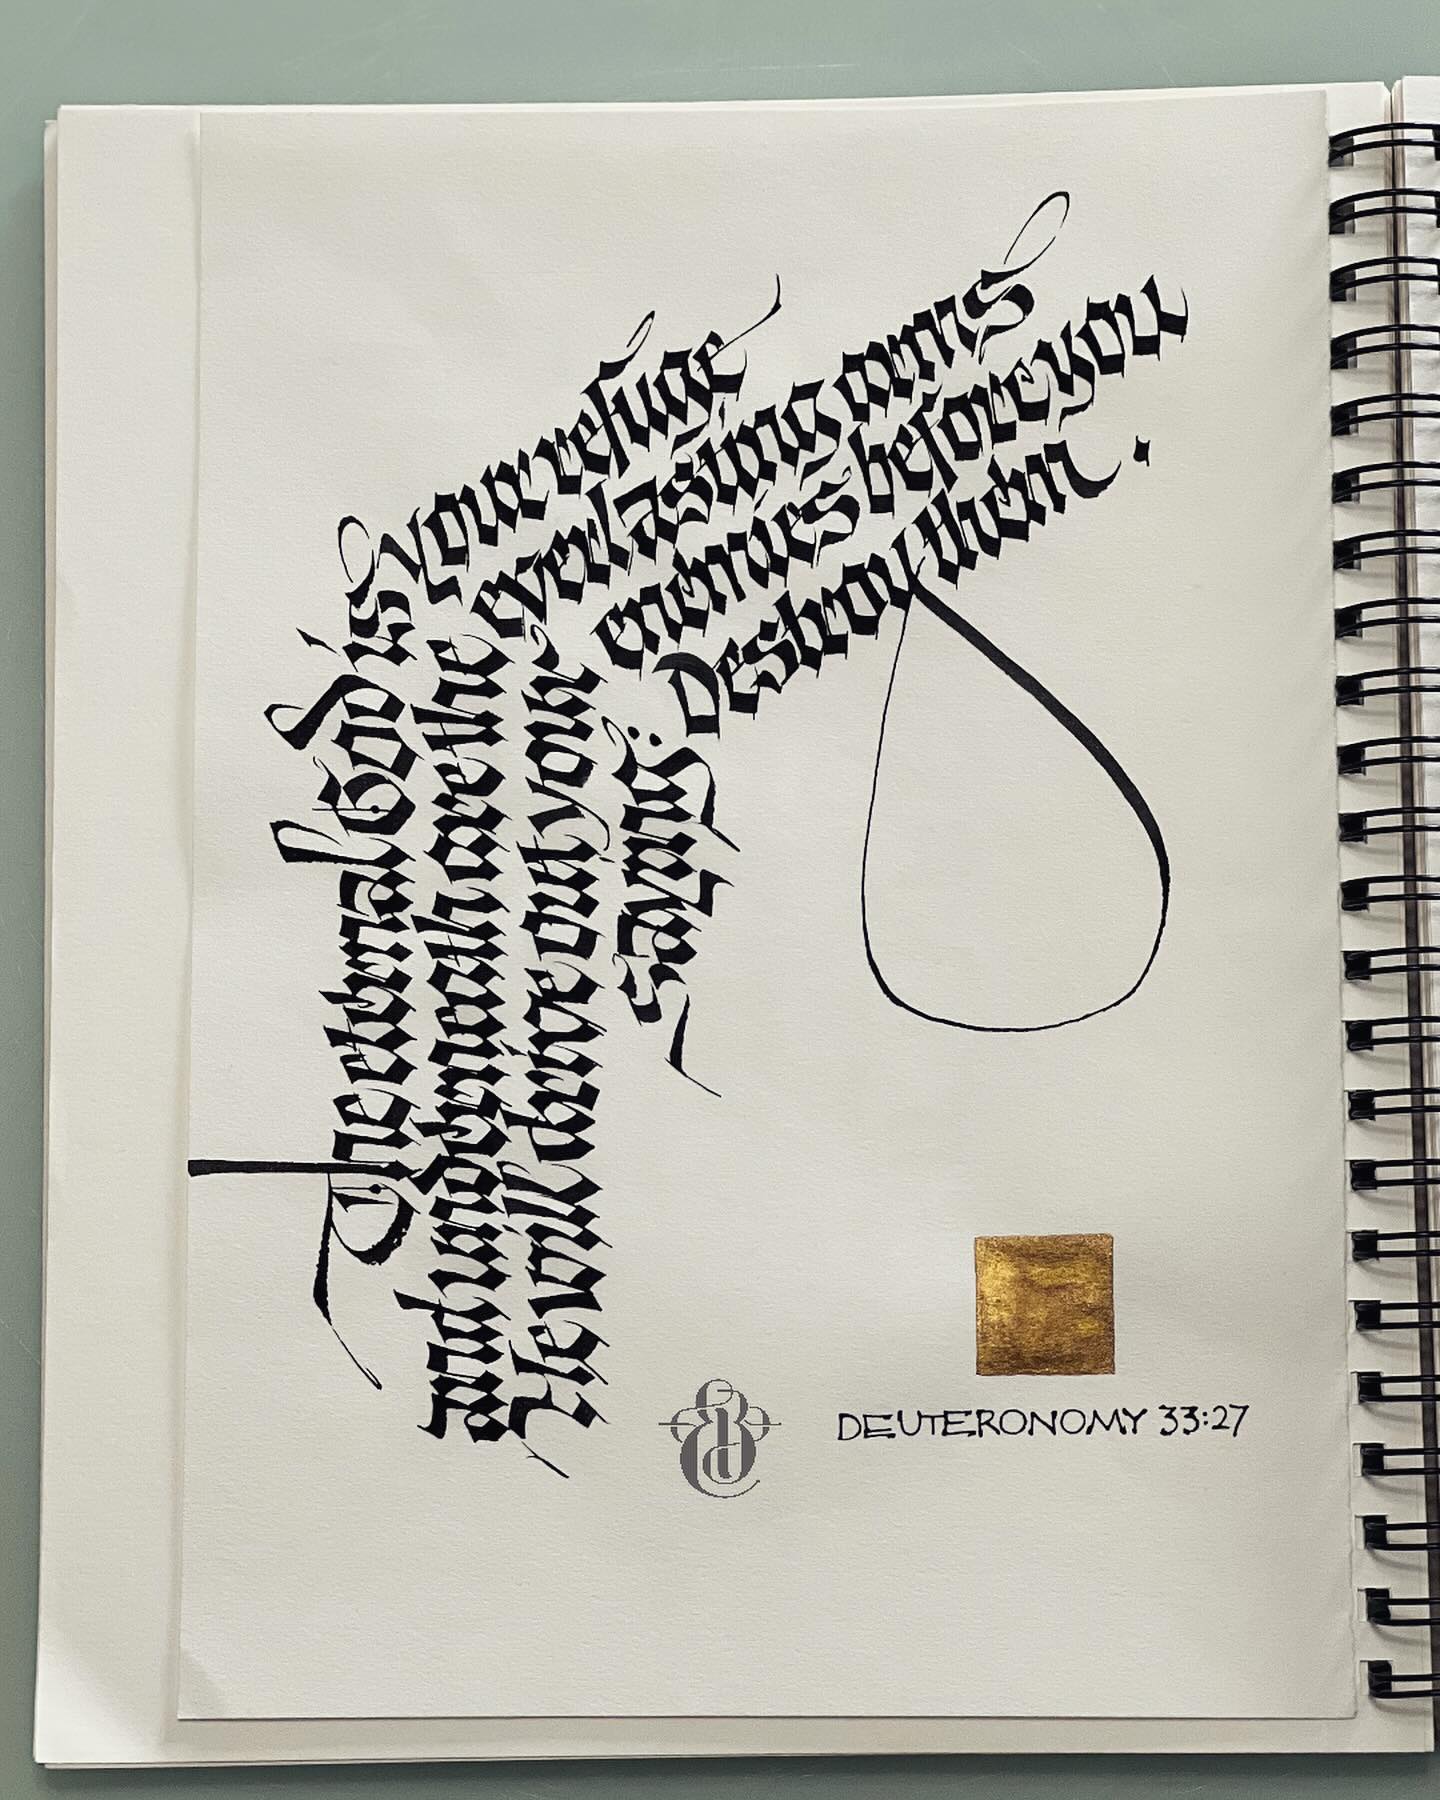 The eternal God is your refuge
and underneath are the everlasting arms
He will drive out your enemies before you
saying: Destroy them.
DEUTERONOMY 33:27